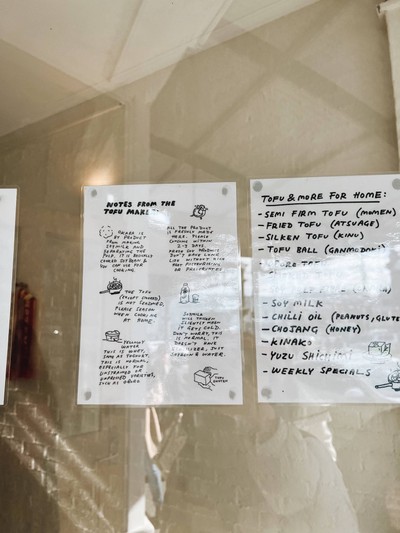 NOTES FROM THE
TOFU
OKARA IS
BY PRODUCT
FROM MAKING
SOYMILK AND
SEPARATING THE
PULP. IT IS
CAN USE FOR
COOKING.
THE TOFU
IS NOT SEASONED.
PLEASE SEASON
WHEN COOKING
AT HOME.
WATER
THIS IS WHEY,
SAME AS YOGHURT.
THIS IS NORMAL,
ESPECIALLY FOR
VARIETIES,
SUCH AS
ALL THE PRODUCT
IS FRESHLY MADE
HERE. PLEASE
CONSUME WITHIN
2-3 DAYS.
DON'T HAVE LONG
LIFE WITHOUT
OR PRESERVATIVES
SOYMILK
WILL THICKEN
SLIGHTLY WHEN
IT GETS COLD.
DON'T WORRY, THIS
IS NORMAL. IT
DOESN'T HAVE
JUST
SOYBEAN & WATER.
TOFU & MORE FOR HOME:
- SEMI FIRM TOFU (MOMEN)
- FRIED TOFU (ATSUAGE)
- SILKEN TOFU (KINU)
- TOFU BALL
- SOY MILK
- CHILLI OIL (PEANUTS, GLUTE
- CHOJANG (HONEY)
- KINAKO
- YUZU
- WEEKLY SPECIALS